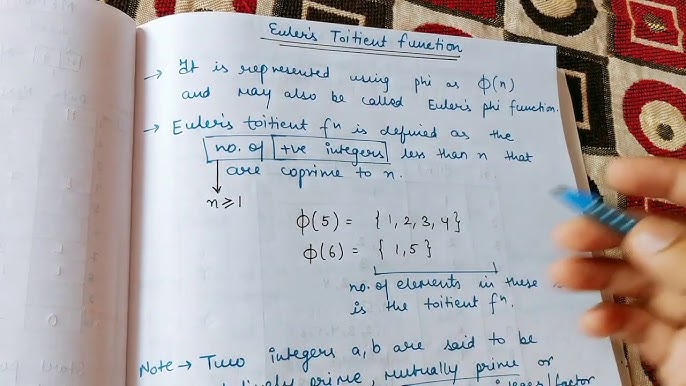 Euler's Toitient Function
→ It is represented using phi as ϕ(n)
and may also be called Euler's phi function.
→ Euler's toitient fⁿ is defined as the
no. of +ve integers less than n that
are coprime to n.
n ≥ 1
ϕ(5) = {1, 2, 3, 4}
ϕ(6) = {1, 5}
no. of elements in these
is the toitient fⁿ.
Note → Two integers a, b are said to be
prime, mutually prime or